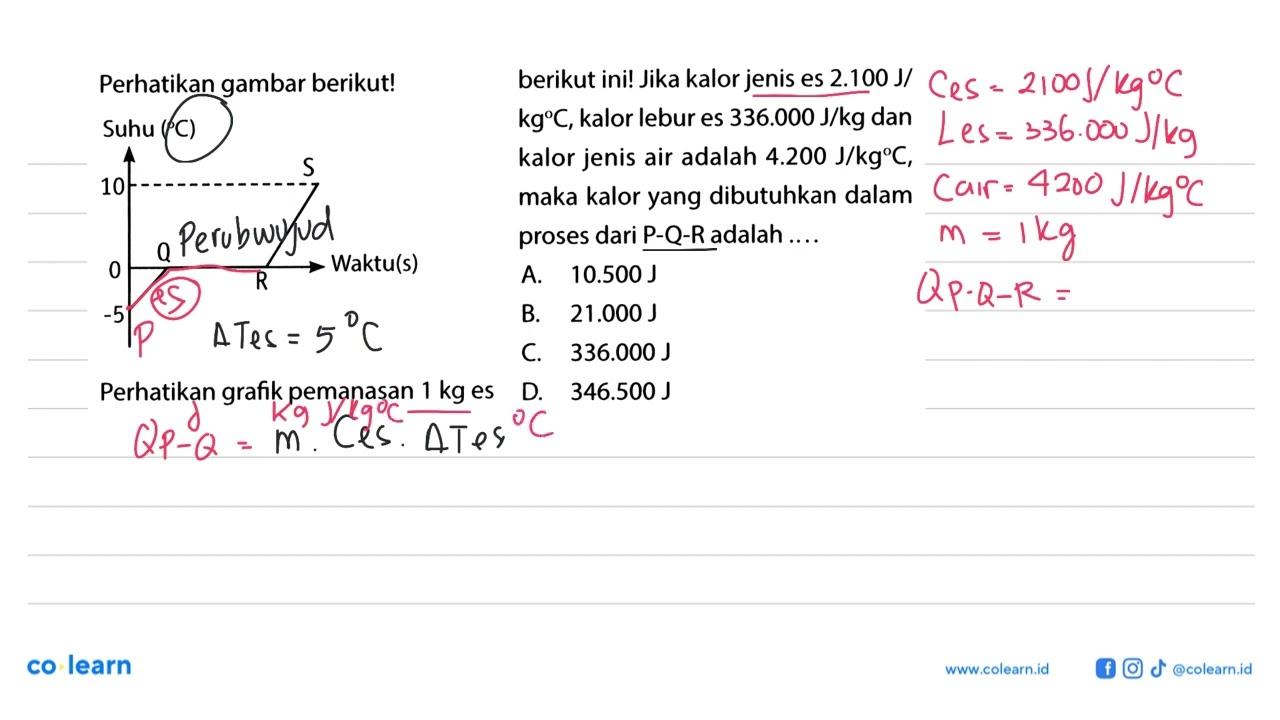 Perhatikan gambar berikut!
Suhu (°C)
S
10
Perubwujud
Q
0
Waktu(s)
R
es
-5
P
ΔTes = 5°C
Perhatikan grafik pemanasan 1 kg es
berikut ini! Jika kalor jenis es 2.100 J/
kg°C, kalor lebur es 336.000 J/kg dan
kalor jenis air adalah 4.200 J/kg°C,
maka kalor yang dibutuhkan dalam
proses dari P-Q-R adalah ....
A. 10.500 J
B. 21.000 J
C. 336.000 J
D. 346.500 J
Ces = 2100 J/kg°C
Les = 336.000 J/kg
Cair = 4200 J/kg°C
m = 1 kg
QP-Q-R =
J kg J/kg°C °C
QP-Q = m . Ces . ΔTes
co·learn
www.colearn.id
@colearn.id